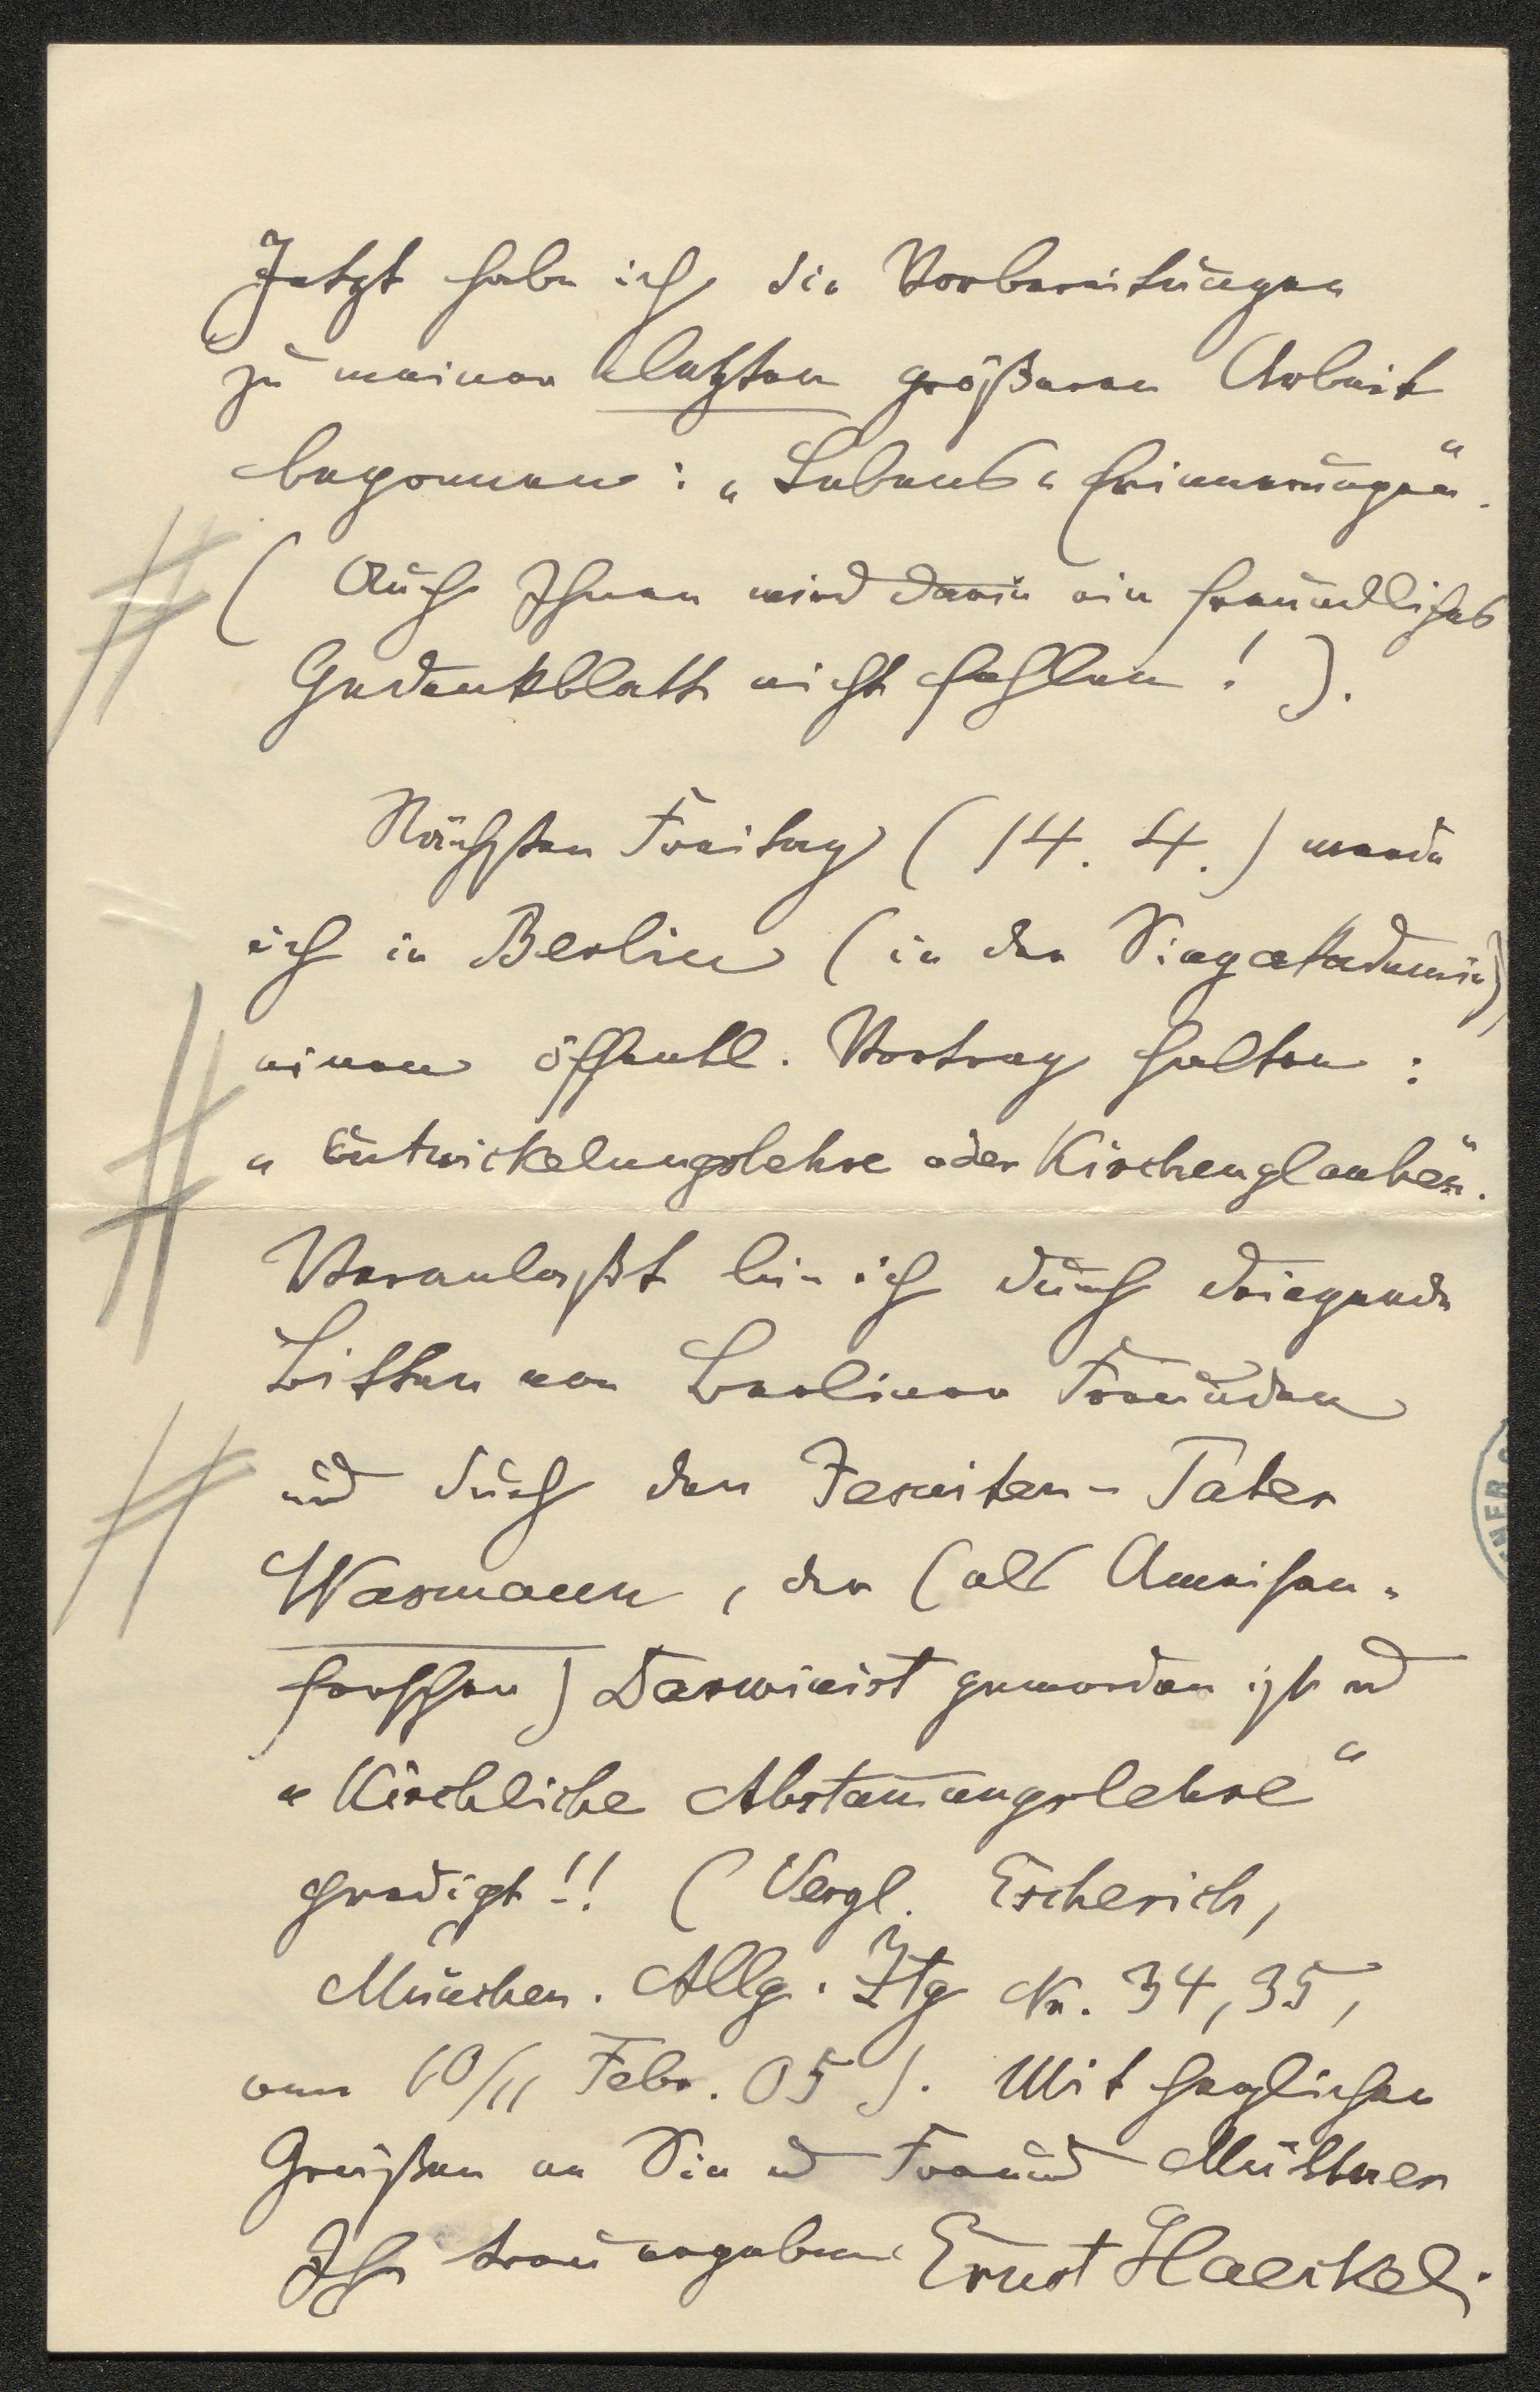 Jetzt habe ich die Vorbereitungen
zu meiner letzten größeren Arbeit
begonnen: „Lebens-Erinnerungen“.
(Auch Ihnen wird darin ein freundliches
Gedenkblatt nicht fehlen!).
Nächsten Freitag (14. 4.) werde
ich in Berlin (in der Singakademie)
einen öffentl. Vortrag halten:
„Entwickelungslehre oder Kirchenglauben“.
Veranlaßt bin ich durch dringende
Bitten von Berliner Freunden
und durch den Jesuiten-Pater
Wasmann, der (als Ameisen-
forscher) Darwinist geworden ist u
„Kirchliche Abstam̄ungslehre“
predigt!! (Vergl. Escherich,
München. Allg. Ztg Nr. 34, 35,
vom 10/11 Febr. 05). Mit herzlichen
Grüßen an Sie u Freund
Ihr treu ergebener Ernst Haeckel.
NER